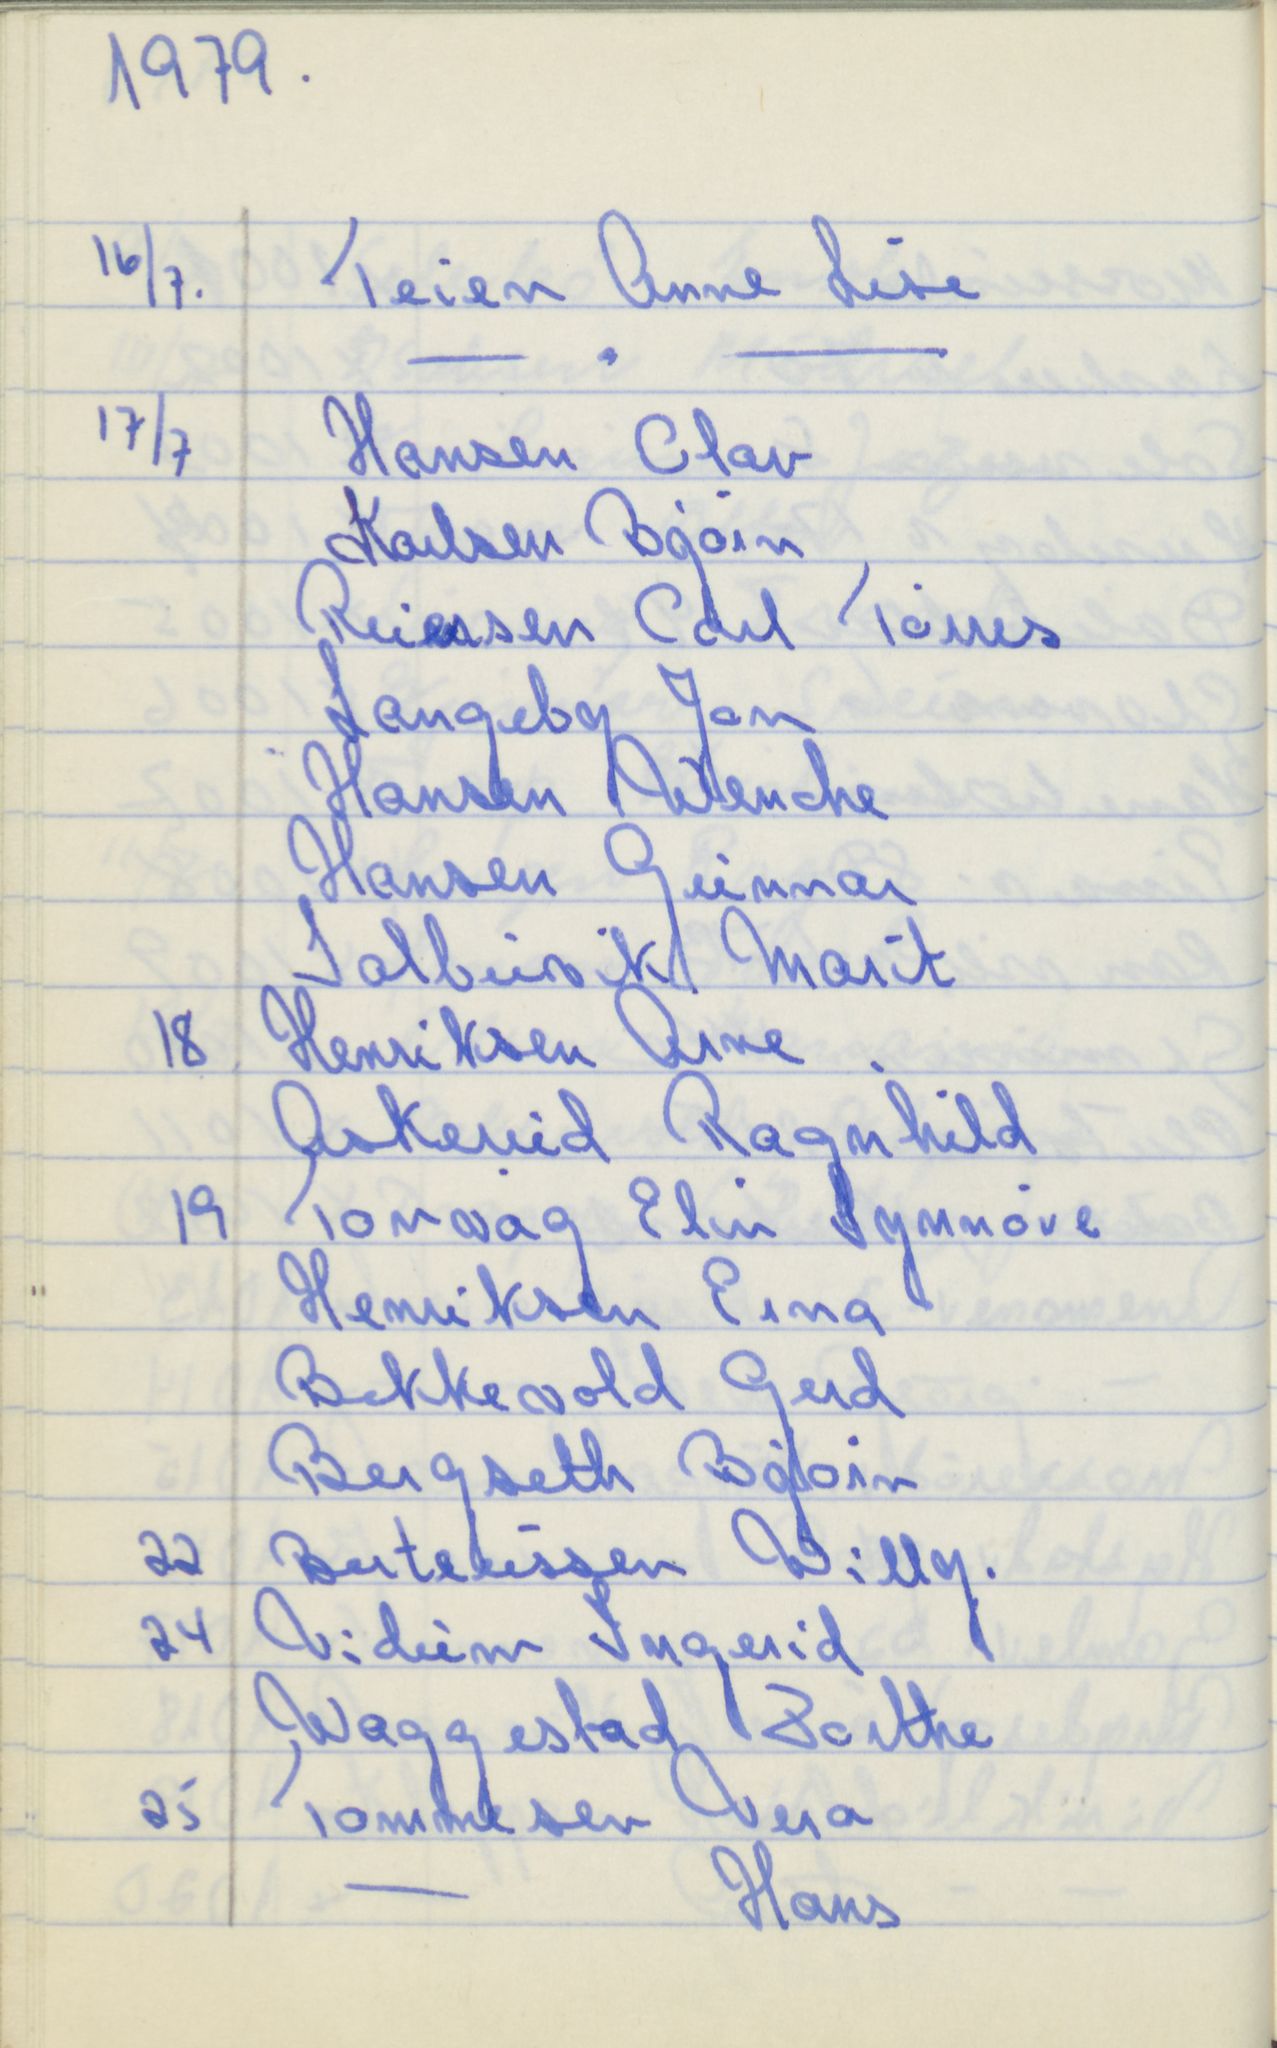 1979.
16/7. Teien Anne Lise
— . —
17/7 Hansen Olav
Karlsen Bjørn
Reiersen Carl Tørres
Langeby Jan
Hansen Wenche
Hansen Gunnar
Salbuvik Marit
18 Henriksen Arne
Askerud Ragnhild
19 Torvvåg Elin Synnøve
Henriksen Erna
Bekkevold Gerd
Bergseth Bjørn
22 Berteussen Willy.
24 Vidum Ingerid
Waggestad Dorthe
25 Tommesen Vera
— Hans